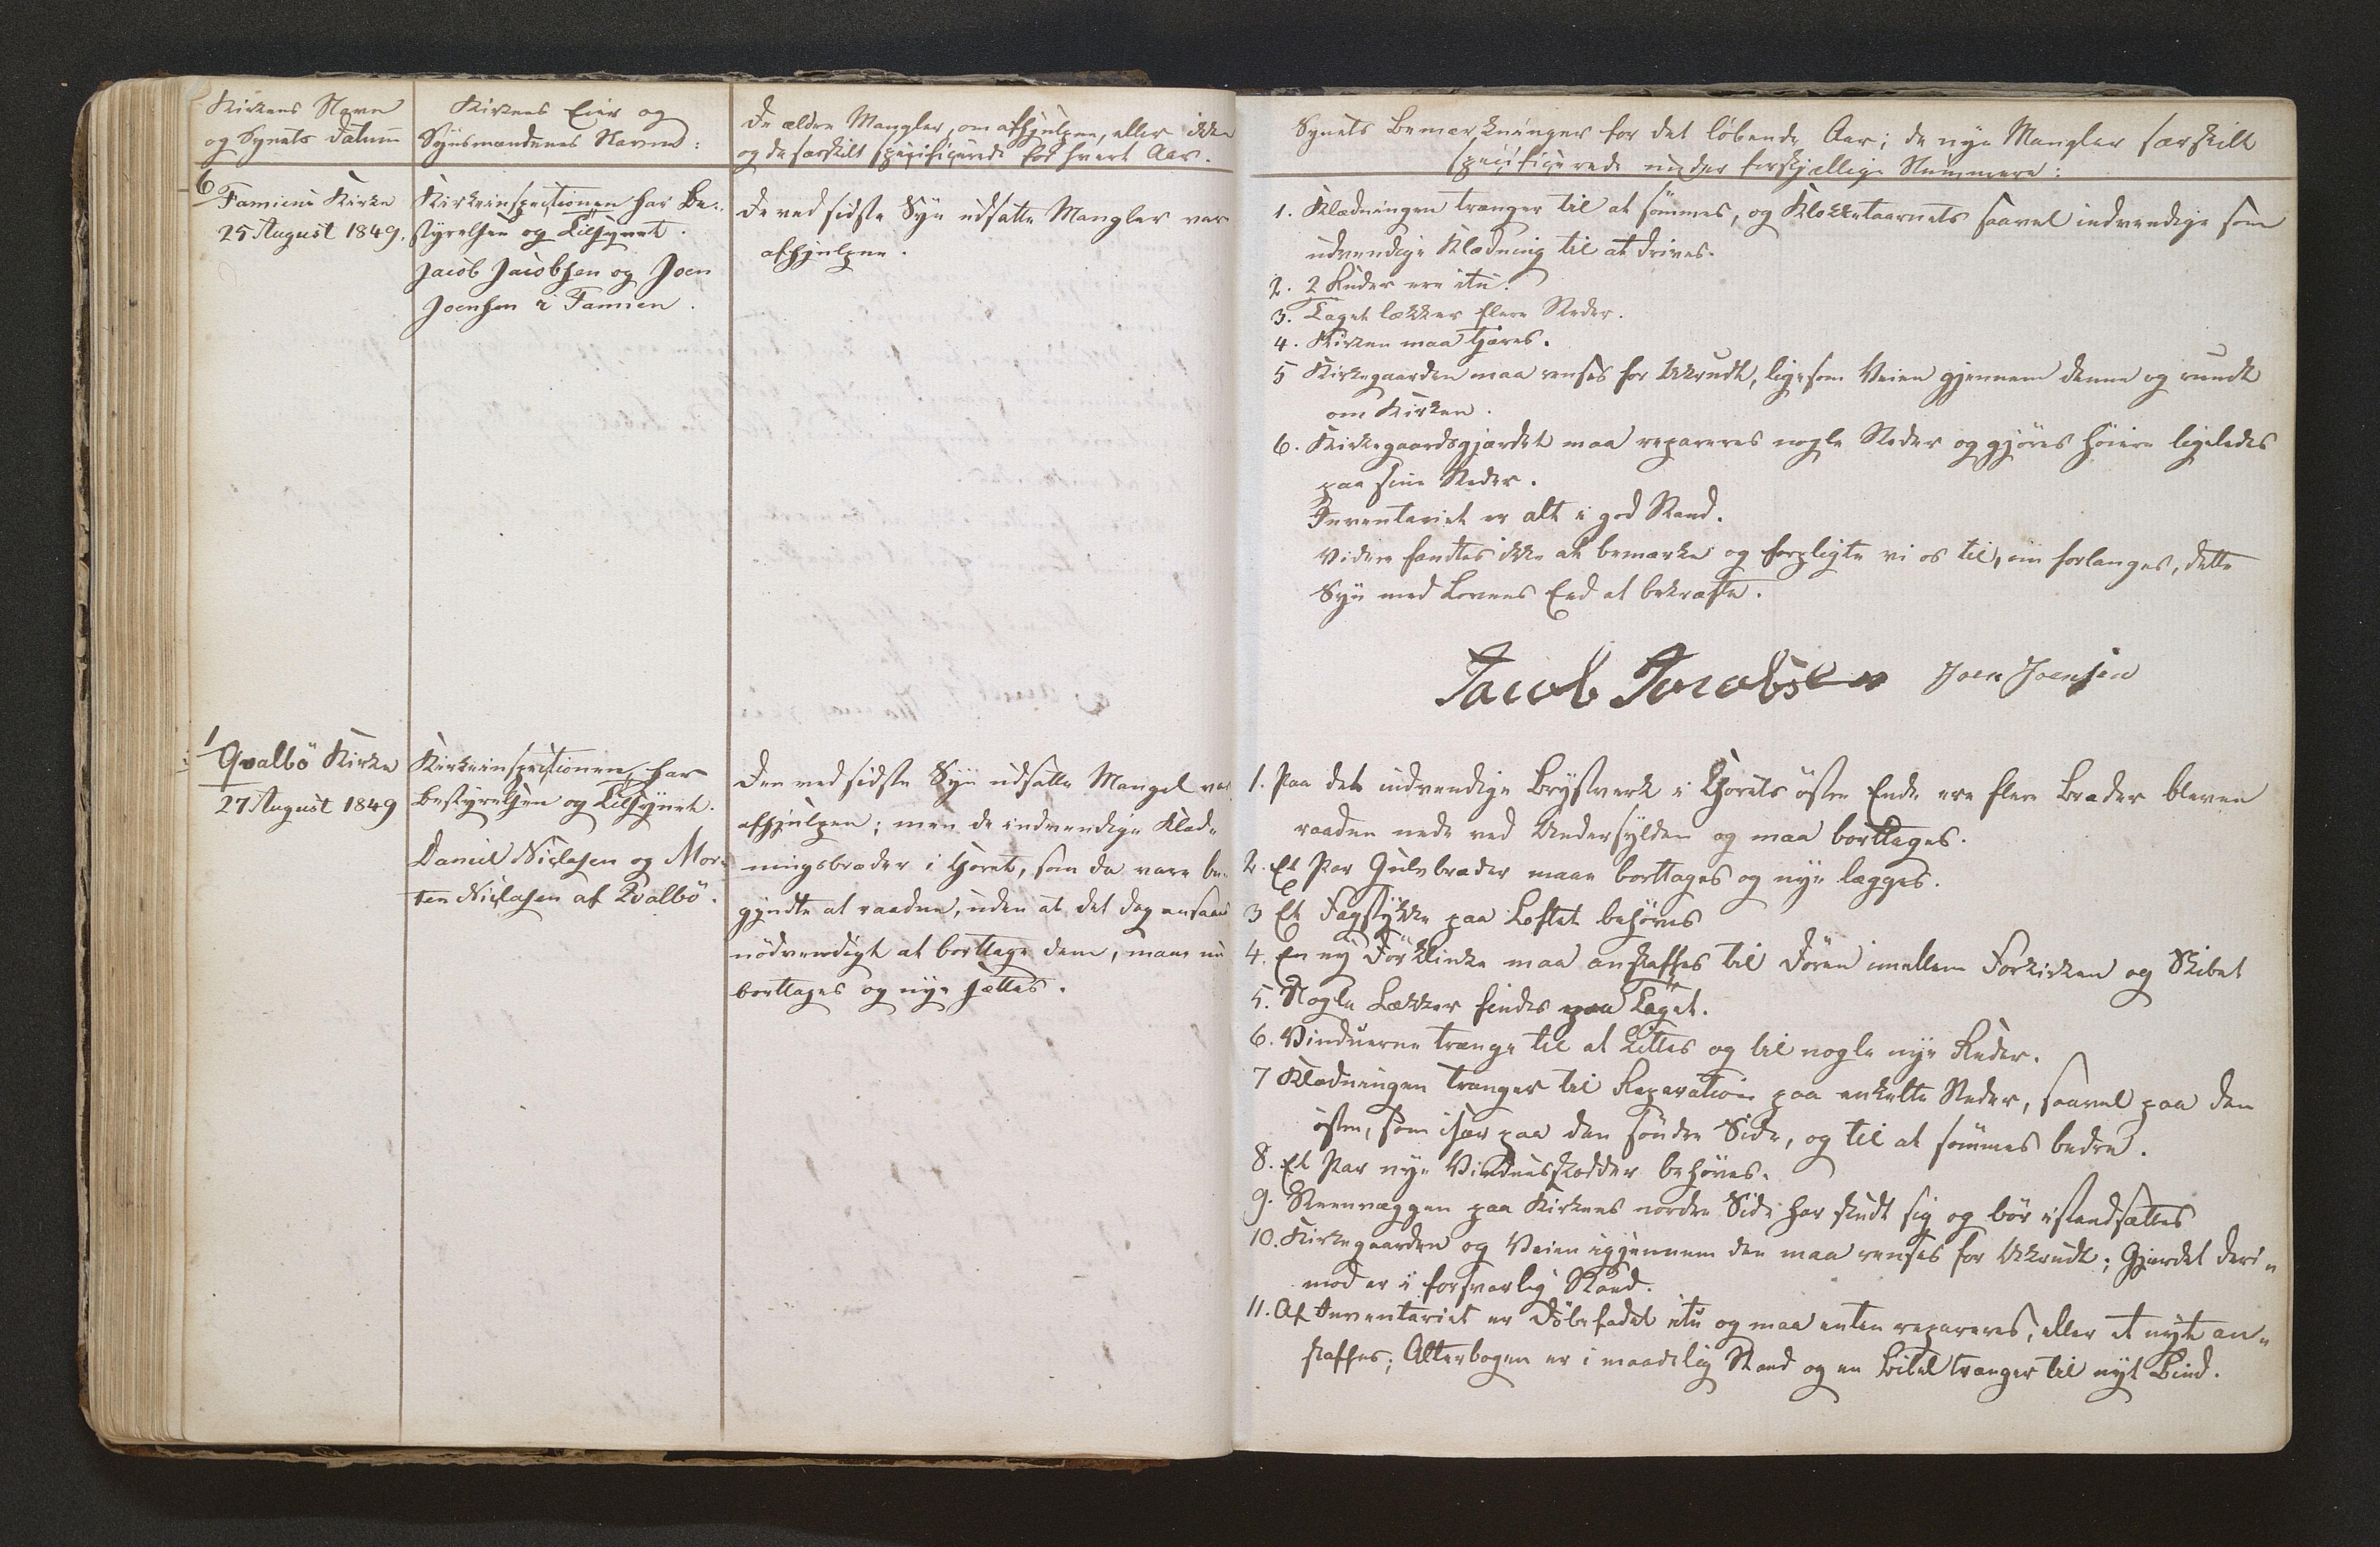 Kirkens Navn
og Synets Datum
Kirkens Eier og
Synsmændenes Navne:
De ældre Mangler, om afhjulpne, eller ikke
og da særskilt specificerede for hvert Aar.
6
Famiens Kirke
25 August 1849.
Kirkeinspectionen har Be-
styrelsen og Tilsynet.
Jacob Jacobsen og Joen
Joensen i Famien.
De ved sidste Syn udsatte Mangler var
afhjulpne.
1
Qvalbö Kirke
27 August 1849
Kirkeinspectionen har
Bestyrelsen og Tilsynet.
Daniel Niclasen og Mor-
ten Niclasen af Qvalbö.
Den ved sidste Syn udsatte Mangel var
afhjulpen; men de indvendige Klæd-
ningsbræder i Choret, som da vare be-
gyndte at raadne, uden at det dog ansaaes
nödvendigt at borttage dem, maae nu
borttages og nye sættes.
Synets Bemærkninger for det löbende Aar; de nye Mangler særskilt
specificerede under forskjællige Nummere:
1. Klædningen trænger til at sömmes, og Klokketaarnets saavel indvendige som
udvendige Klædning til at drives.
2. 2 Ruder ere itu.
3. Taget lækker flere Steder.
4. Kirken maa tjæres.
5 Kirkegaarden maa renses for Ukrudt, ligesom Veien gjennem denne og rundt
om Kirken.
6. Kirkegaardsgjærdet maa repareres nogle Steder og gjöres höiere ligeledes
paa sine Steder.
Inventariet er alt i god Stand.
Videre fandtes ikke at bemærke og forpligte vi os til, om forlanges, dette
Syn med Lovens Eed at bekræfte.
Jacob Jacobsen Joen Joensen
1. Paa det indvendige Brystværk i Chorets östre Ende ere flere Bræder blevne
raadne nede ved Undersylden og maa borttages.
2. Et Par Gulvbræder maae borttages og nye lægges.
3 Et Fagstykke paa Loftet behöves
4. En ny Dörklinke maa anskaffes til Dören imellem Forkirken og Skibet
5. Nogle Lækker findes paa Taget.
6. Vinduerne trænge til at kittes og til nogle nye Ruder.
7 Klædningen trænger til Reparation paa enkelte Steder, saavel paa den
östre, som især paa den söndre Side, og til at sömmes bedre.
8. Et Par nye Vinduesskodder behöves.
9. Steenvæggen paa Kirkens nordre Side har skudt sig og bör istandsættes
10. Kirkegaarden og Veien igjennem den maa renses for Ukrudt; Gjerdet deri-
mod er i forsvarlig Stand.
11. Af Inventariet er Döbefadet itu og maa enten repareres, eller et nyt an-
skaffes; Alterbogen er i maadelig Stand og en Bibel trænger til nyt Bind.